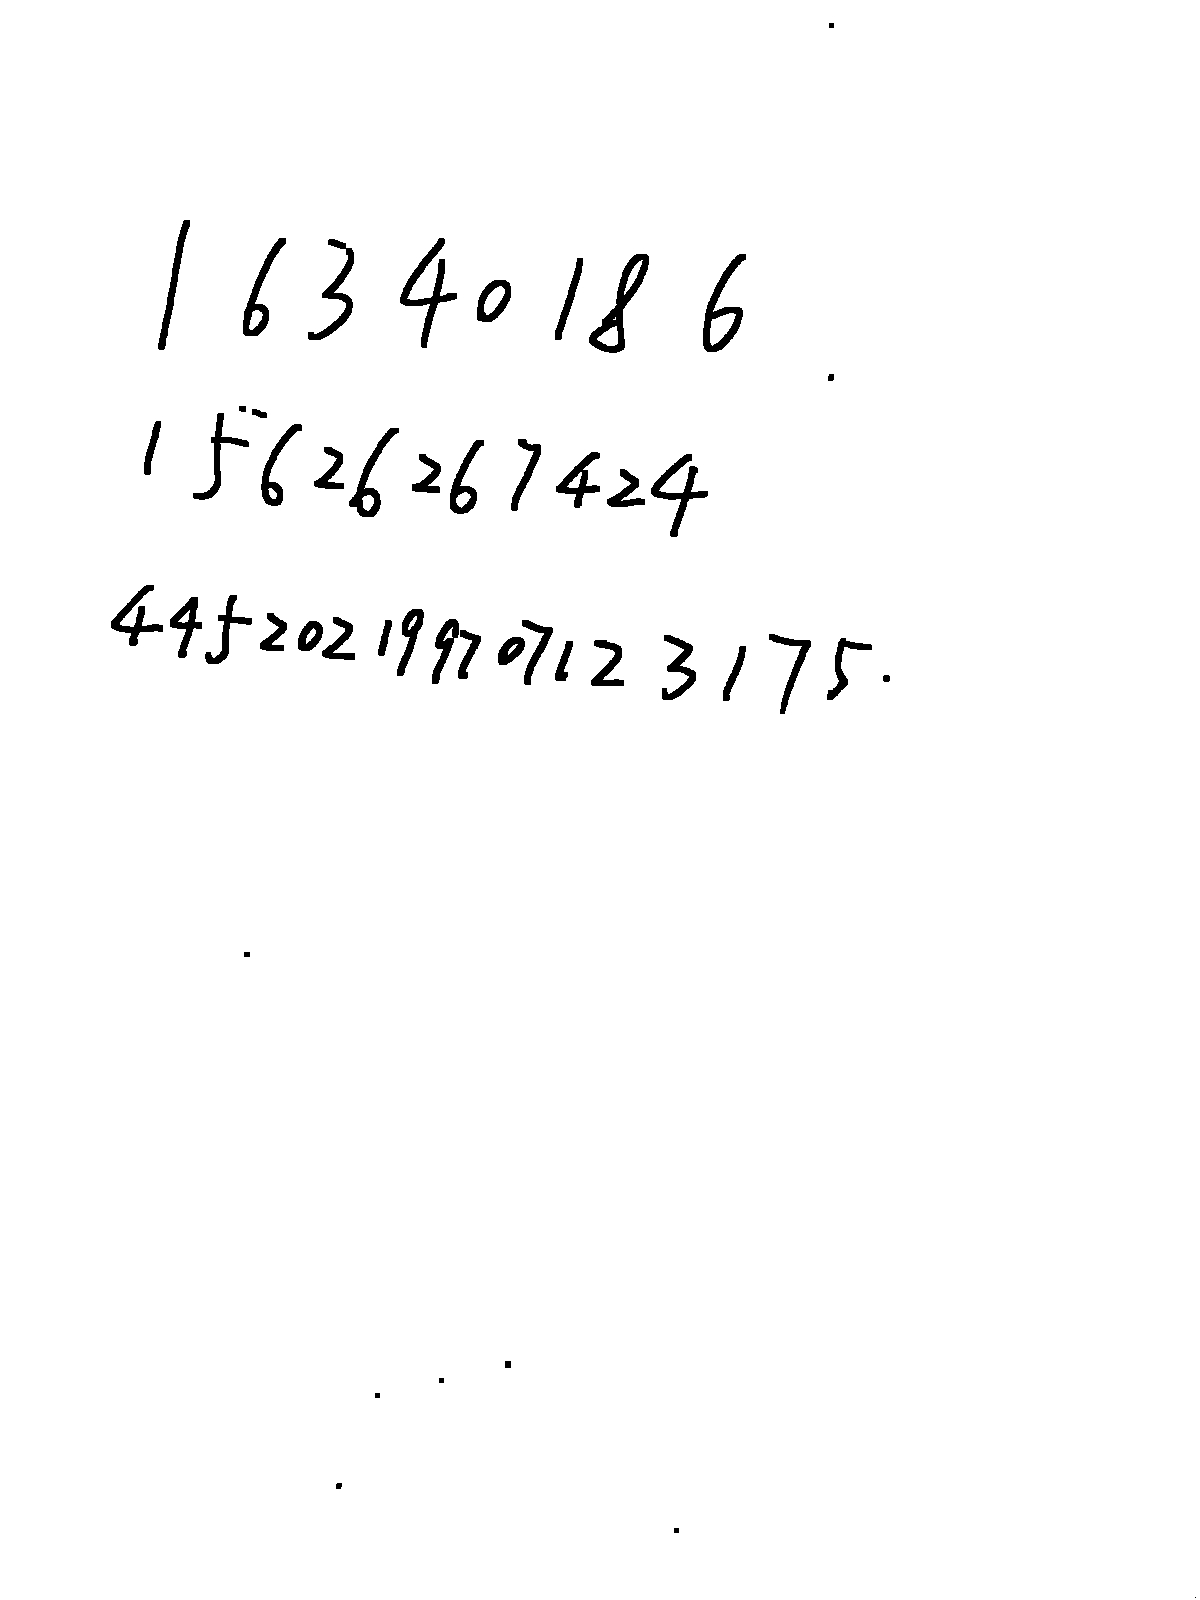 16340186
15626267424
445202199707123175.